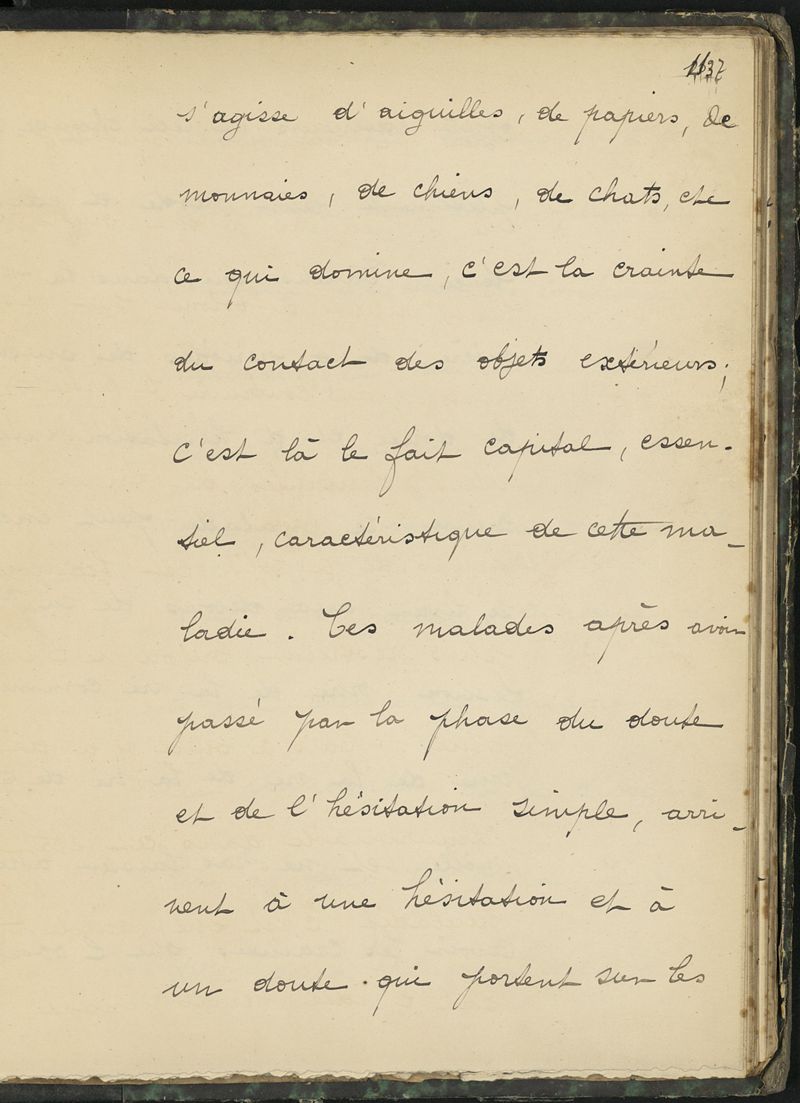 1137
s'agisse d'aiguilles, de papiers, de
monnaies, de chiens, de chats, etc
ce qui domine, c'est la crainte
du contact des objets extérieurs;
c'est là le fait capital, essen-
tiel, caractéristique de cette ma-
ladie. Ces malades après avoir
passé par la phase du doute
et de l'hésitation simple, arri-
vent à une hésitation et à
un doute qui portent sur les